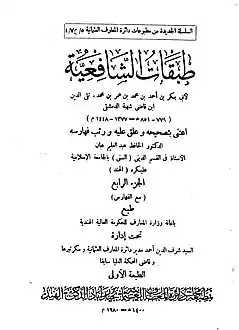 السلسلة الجديدة من مطبوعات دائرة المعارف العثمانية
طبقات الشافعية
لأبى بكر بن أحمد بن محمد بن عمر بن محمد، تقى الدين
ابن قاضى شهبة الدمشقى
(٧٧٩ - ٨٥١ھ = ١٣٧٧ - ١٤٤٨ م)
اعتنى بتصحيحه و علق عليه و رتب فهارسه
الدكتور الحافظ عبد العليم خان
الاستاذ فى القسم الدينى (السنى) بالجامعة الإسلامية
عليكره (الهند)
الجزء الرابع
(مع الفهارس)
طبع
باعانة وزارة المعارف للحكومة العالية الهندية
تحت إدارة
السيد شرف الدين أحمد مدير دائرة المعارف العثمانية و سكرتيرها
و قاضى المحكمة العليا سابقا
الطبعة الأولى
بمطبعة دائرة المعارف العثمانية بحيدرآباد الدكن الهند
١٤٠٠ھ = ١٩٨٠ م